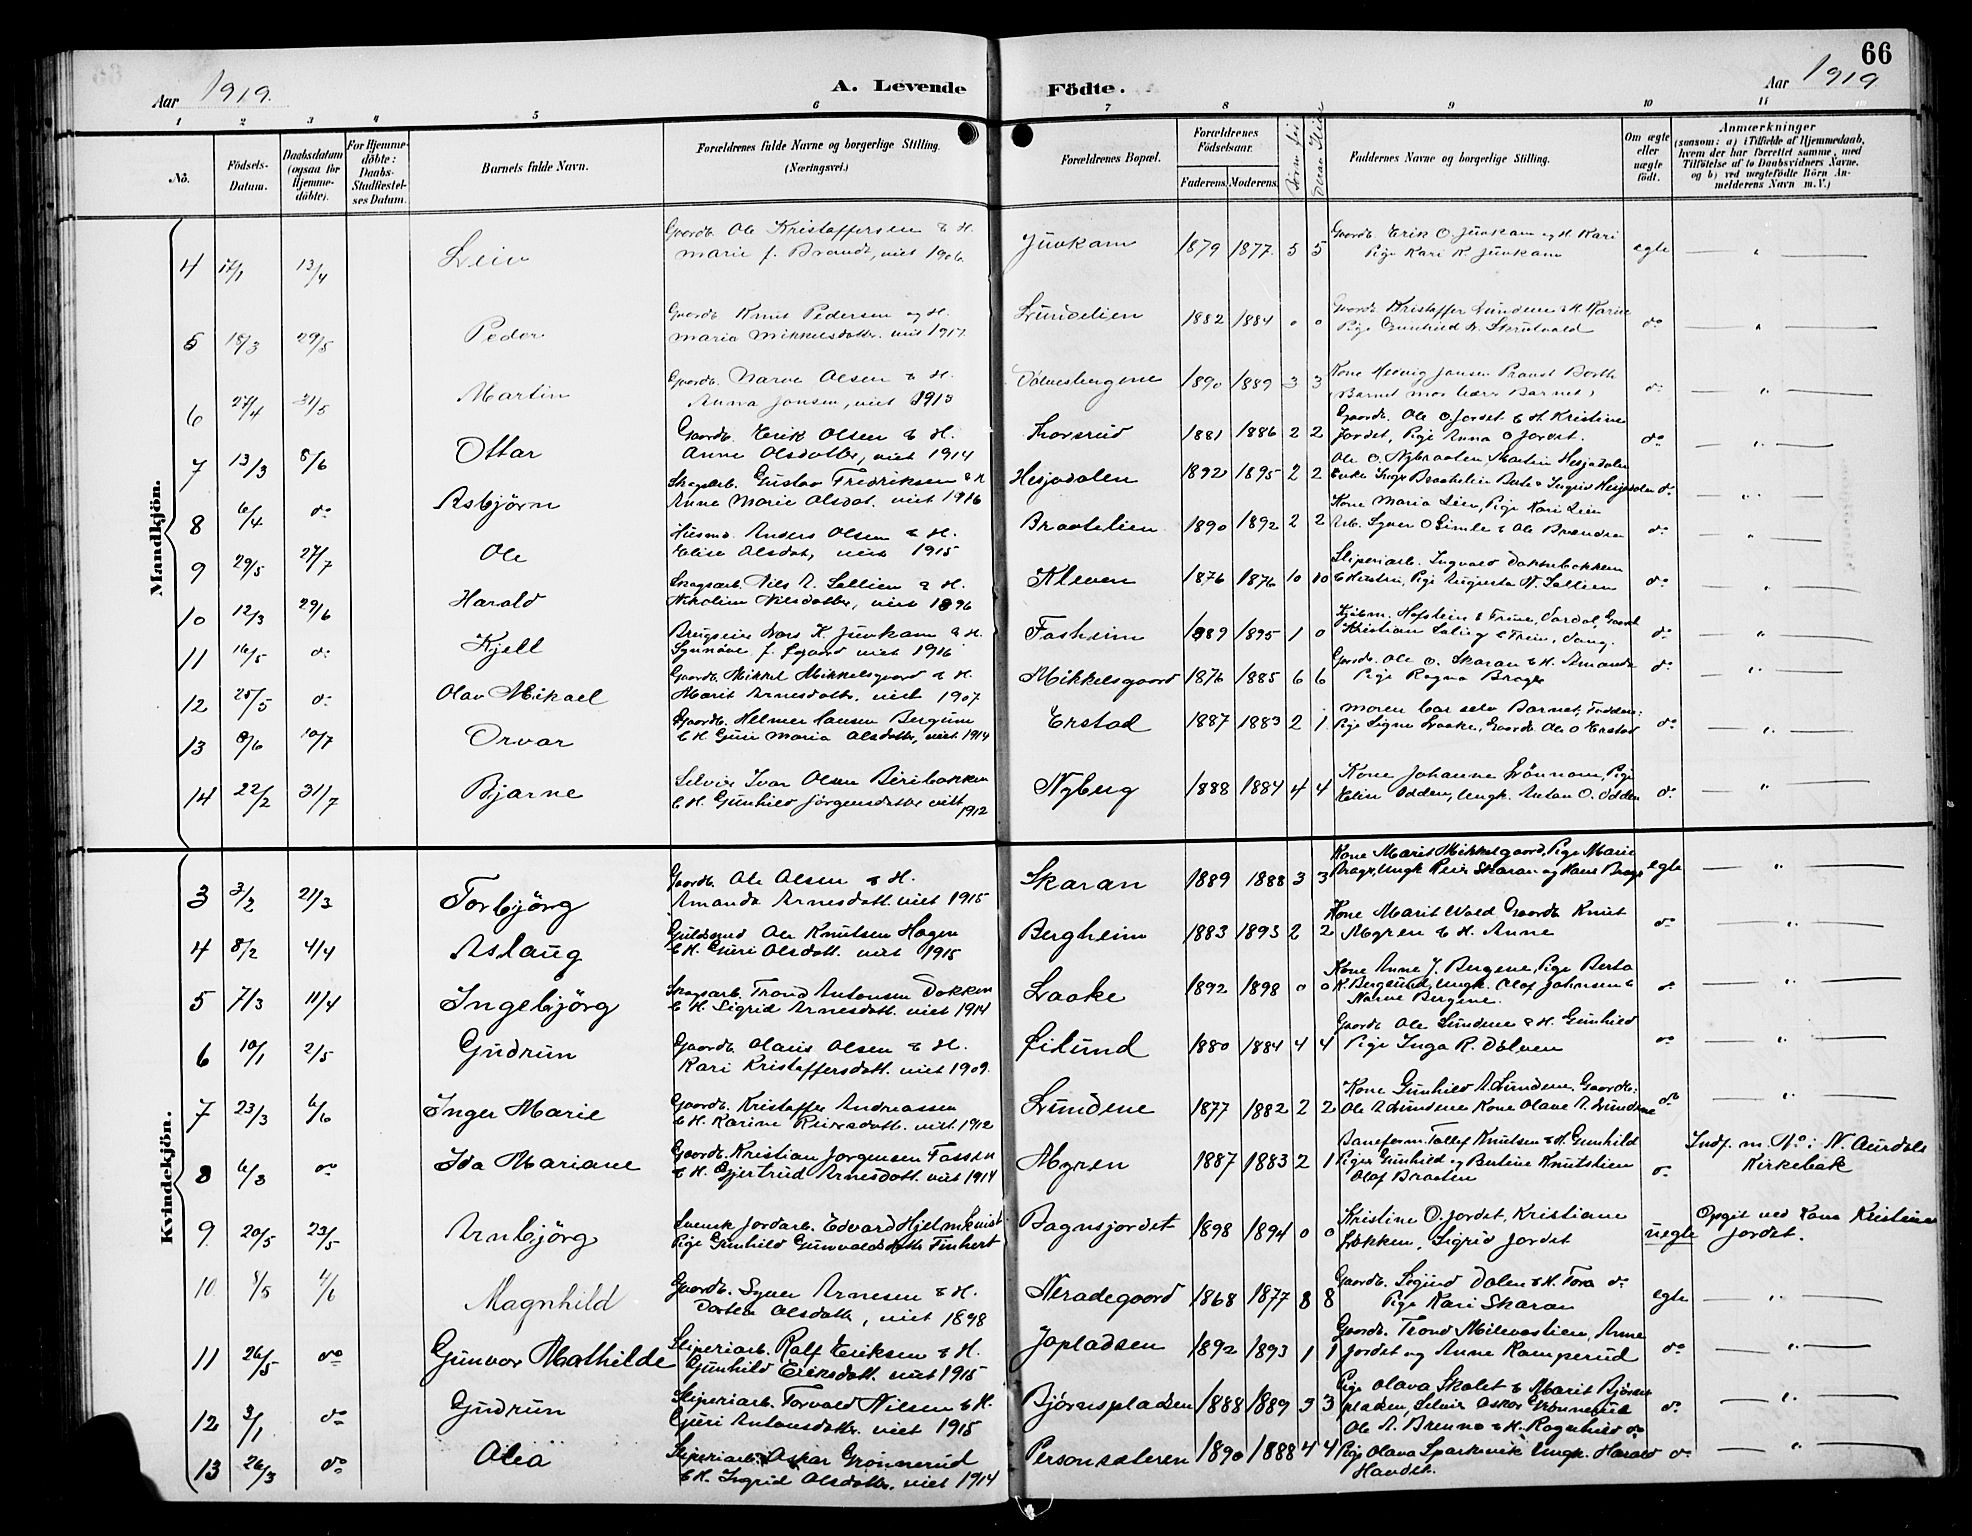 66
Aar 1919.
A. Levende
Födte.
Aar 1919
1 2 3 4 5 6 7 8 9 10 11
No.
Födsels-Datum.
Daabsdatum (ogsaa for Hjemme-döbte).
For Hjemme-döbte: Daabs-Stadfæstel-ses Datum.
Barnets fulde Navn.
Forældrenes fulde Navne og borgerlige Stilling. (Næringsvei.)
Forældrenes Bopæl.
Forældrenes Födselsaar.
Faderens. Moderens.
Faddernes Navne og borgerlige Stilling.
Om ægte eller uægte födt.
Anmærkninger (saasom: a) i Tilfælde af Hjemmedaab, hvem der har forrettet samme, med Tilföielse af to Daabsvidners Navne, og b) ved uægtefödte Börn An-melderens Navn m.V.)
Mandkjön.
4 17/1 13/4 Leiv Gaardb. Ole Kristaffersen & H. Marie f. Brandt, viet 1906. Juvkam 1879 1877 5 5 Gaardb. Erik O. Juvkam og H. Kari Pige Kari K. Juvkam egte "
5 18/3 29/5 Peder Gaardb. Knut Pedersen og H. Maria Mikkelsdatter. viet 1917. Lundelien 1882 1884 0 0 Gaardb. Kristaffer Lundene & H. Karine Pige Gunhild K. Skrutvold do "
6 27/4 31/5 Martin Gaardb. Narve Olsen & H. Anna Jonsen, viet 1913 Dölvesbergene 1890 1889 3 3 Kone Hedvig Jansen (Barnet mor bærer Barnet) do "
7 13/3 8/6 Ottar Gaardb. Erik Olsen & H. Anne Olsdatter, viet 1914 Thorsrud 1881 1886 2 2 Gaardb. Ole O. Jordet & H. Kristine Jordet, Pige Anna O Jordet. do "
8 6/4 do Asbjörn Skogsarb. Gustav Fredriksen & H Anne Marie Olsdat. viet 1916 Hesjedalen 1892 1895 2 2 Ole O. Nybraaten, Martin Hesjedalen Enke Inga Braatelien Berte & Ingrid Hesjedalen do "
9 29/5 27/7 Ole Husmd. Anders Olsen & H. Elise Olsdat, viet 1915 Braatelien 1890 1892 2 2 Kone Maria Lien, Pige Kari Lien Arb. Syver O Gimle & Ole Brændren do "
10 12/3 29/6 Harald Skogsarb. Nils A. Sellien & H. Nikoline Nilsdatter, viet 1896 Kleven 1876 1876 10 10 Sliperiarb. Ingvald Dokkebakken & Hustru, Pige Augusta N. Sellien do "
11 16/5 do Kjell Brugseier Lars K. Juvkam & H. Synnöve f. viet 1916 Fosheim 1889 1895 1 0 Kjöbm. Hofstein & Trine, Vardal, Gaardb. Kristian & Trine, Vang. do "
12 25/5 do Olav Mikael Gaardb. Mikkel Mikkelsgaard & H. Marit Arnesdatter. viet 1907 Mikkelsgaard 1876 1885 6 6 Gaardb. Ole O. Skaran & H. Amanda Pige Ragna Brager do "
13 8/6 10/7 Orvar Gaardb. Helmer Hansen Bergum & H. Guri Maria Olsdatter, viet 1914 Erstad 1887 1883 2 1 Moren bar selv Barnet, Faddere: Pige Signe Laake, Gaardb. Ole O Erstad do "
14 22/2 31/7 Bjarne Selveier Ivar Olsen Beribakken & H. Gunhild Jörgensdatter viet 1912 Nyberg 1888 1884 4 4 Kone Johanne Grönnom, Pige Elise Odden, Ungk. Anton O. Odden do "
Kvindekjön.
3 3/2 21/3 Torbjörg Gaardb. Ole Olsen & H. Amanda Arnesdatt. viet 1915 Skaran 1889 1888 3 3 Kone Marit Mikkelsgaard, Pige Marie Brager, Ungk Peder Skaran og Hans Brager egte "
4 8/2 4/4 Aslaug Guldsmed Ole Knutsen Hagen & H. Guri Olsdatt. viet 1915 Bergheim 1883 1893 2 2 Kone Marit Wold Gaardb. Knut Myren & H. Anne do "
5 7/3 11/4 Ingebjörg Skogsarb. Trond Antonsen Dokken & H. Sigrid Arnesdatt. viet 1914 Laake 1892 1898 0 0 Kone Anne J. Bergene, Pige Berta K. Bergsund, Ungk. Olaf Johnsen & Narve Bergene. do "
6 10/1 2/5 Gudrun Gaardb. Olaus Olsen & H. Kari Kristaffersdatt. viet 1909. Öilund 1880 1884 4 4 Gaardb. Ole Lundene & H. Gunhild Pige Inga R. Dölven do "
7 23/3 6/6 Inger Marie Gaardb. Kristaffer Andreassen & H. Karine Reiersdatt. viet 1912 Lundene 1877 1882 2 2 Kone Gunhild A. Lundene. Gaardb: Ole A Lundene Kone Olava A. Lundene do "
8 6/3 do Ida Mariane Gaardb. Kristian Jorgensen Fossen & H. Gjertrud Arnesdatt. viet 1914 Myren 1887 1883 2 1 Baneform. Tollef Knutsen & H. Gunhild Piger Gunhild og Bertine Knutslien Olaf Braaten do Indf. m. No i N. Aurdals Kirkebok
9 20/5 23/5 Arnbjörg Svensk Jordarb. Edvard Hjelmkvist Pige Gunhild Gunvaldsdatter Finhert Bagnsjordet 1898 1894 0 0 Kristine O. Jordet, Kristiane Løkken, Sigrid Jordet uegte Opgit ved Kone Kristine Jordet.
10 4/5 4/6 Magnhild Gaardb. Syver Arnesen & H. Dortea Olsdatter, viet 1898 Neradegaard 1868 1877 8 8 Gaardb. Sigurd Dalen & H. Tora do Pige Kari Skaran egte "
11 26/5 do Gunvor Mathilde Sliperiarb. Ralf Eriksen & H. Gunhild Eriksdatt. viet 1915 Jopladsen 1892 1893 1 1 Gaardb. Trond Milevaslien, Anne Jordet og Anne Kamperud do "
12 3/1 do Gudrun Sliperiarb. Torvald Nilsen & H. Guri Antonsdatter. viet 1915 Bjørnspladsen 1888 1889 3 3 Pige Olava Skolet & Marit Bjørnspladsen, Selvei Oskar Grønnerud Ole A. Brenno & H. Ragnhild do do "
13 26/3 do Olea Sliperiarb. Oskar Grönnerud & H. Ingrid Olsdatter. viet 1914 Personsæteren 1890 1888 4 4 Pige Olava Sparkevik Ungk. Harald Haudet. do "